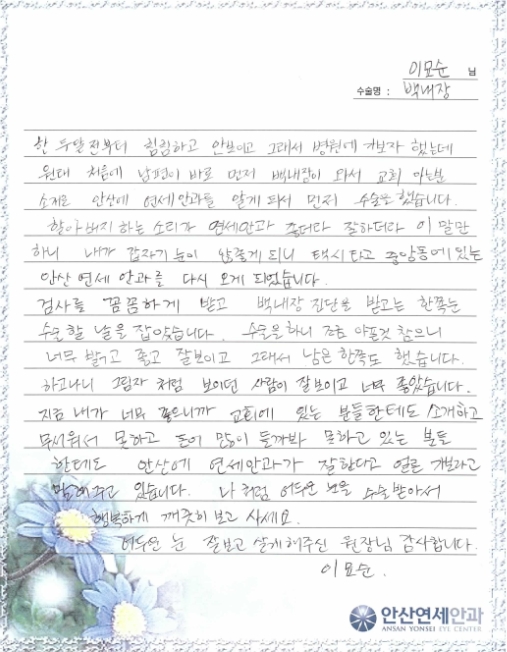 이묘순 님
수술명 : 백내장
한 두달전부터 침침하고 안보이고 그래서 병원에 가보자 했는데
원래 처음에 남편이 바로 먼저 백내장이 와서 교회 아는분
소개로 안산에 연세안과를 알게 되서 먼저 수술을 했습니다.
할아버지 하는 소리가 연세안과 좋더라 잘하더라 이 말만
하니 내가 갑자기 눈이 안좋게 되니 택시타고 중앙동에 있는
안산 연세 안과를 다시 오게 되었습니다.
검사를 꼼꼼하게 받고 백내장 진단을 받고는 한쪽눈
수술할 날을 잡았습니다. 수술을 하니 조금 아플것 참으니
너무 밝고 좋고 잘보이고 그래서 남은 한쪽도 했습니다.
하고나니 그림자 처럼 보이던 사람이 잘보이고 너무 좋았습니다.
지금 내가 너무 좋으니까 교회에 있는 분들한테도 소개하고
무서워서 못하고 돈이 많이 들까봐 못하고 있는 분들
한테도 안산에 연세안과가 잘한다고 얼른 가보라고
말해주고 있습니다. 나 처럼 어두운 눈을 수술받아서
행복하게 깨끗이 보고 사세요.
어두운 눈 잘보고 살게해주신 원장님 감사합니다.
이묘순.
안산연세안과
ANSAN YONSEI EYE CENTER